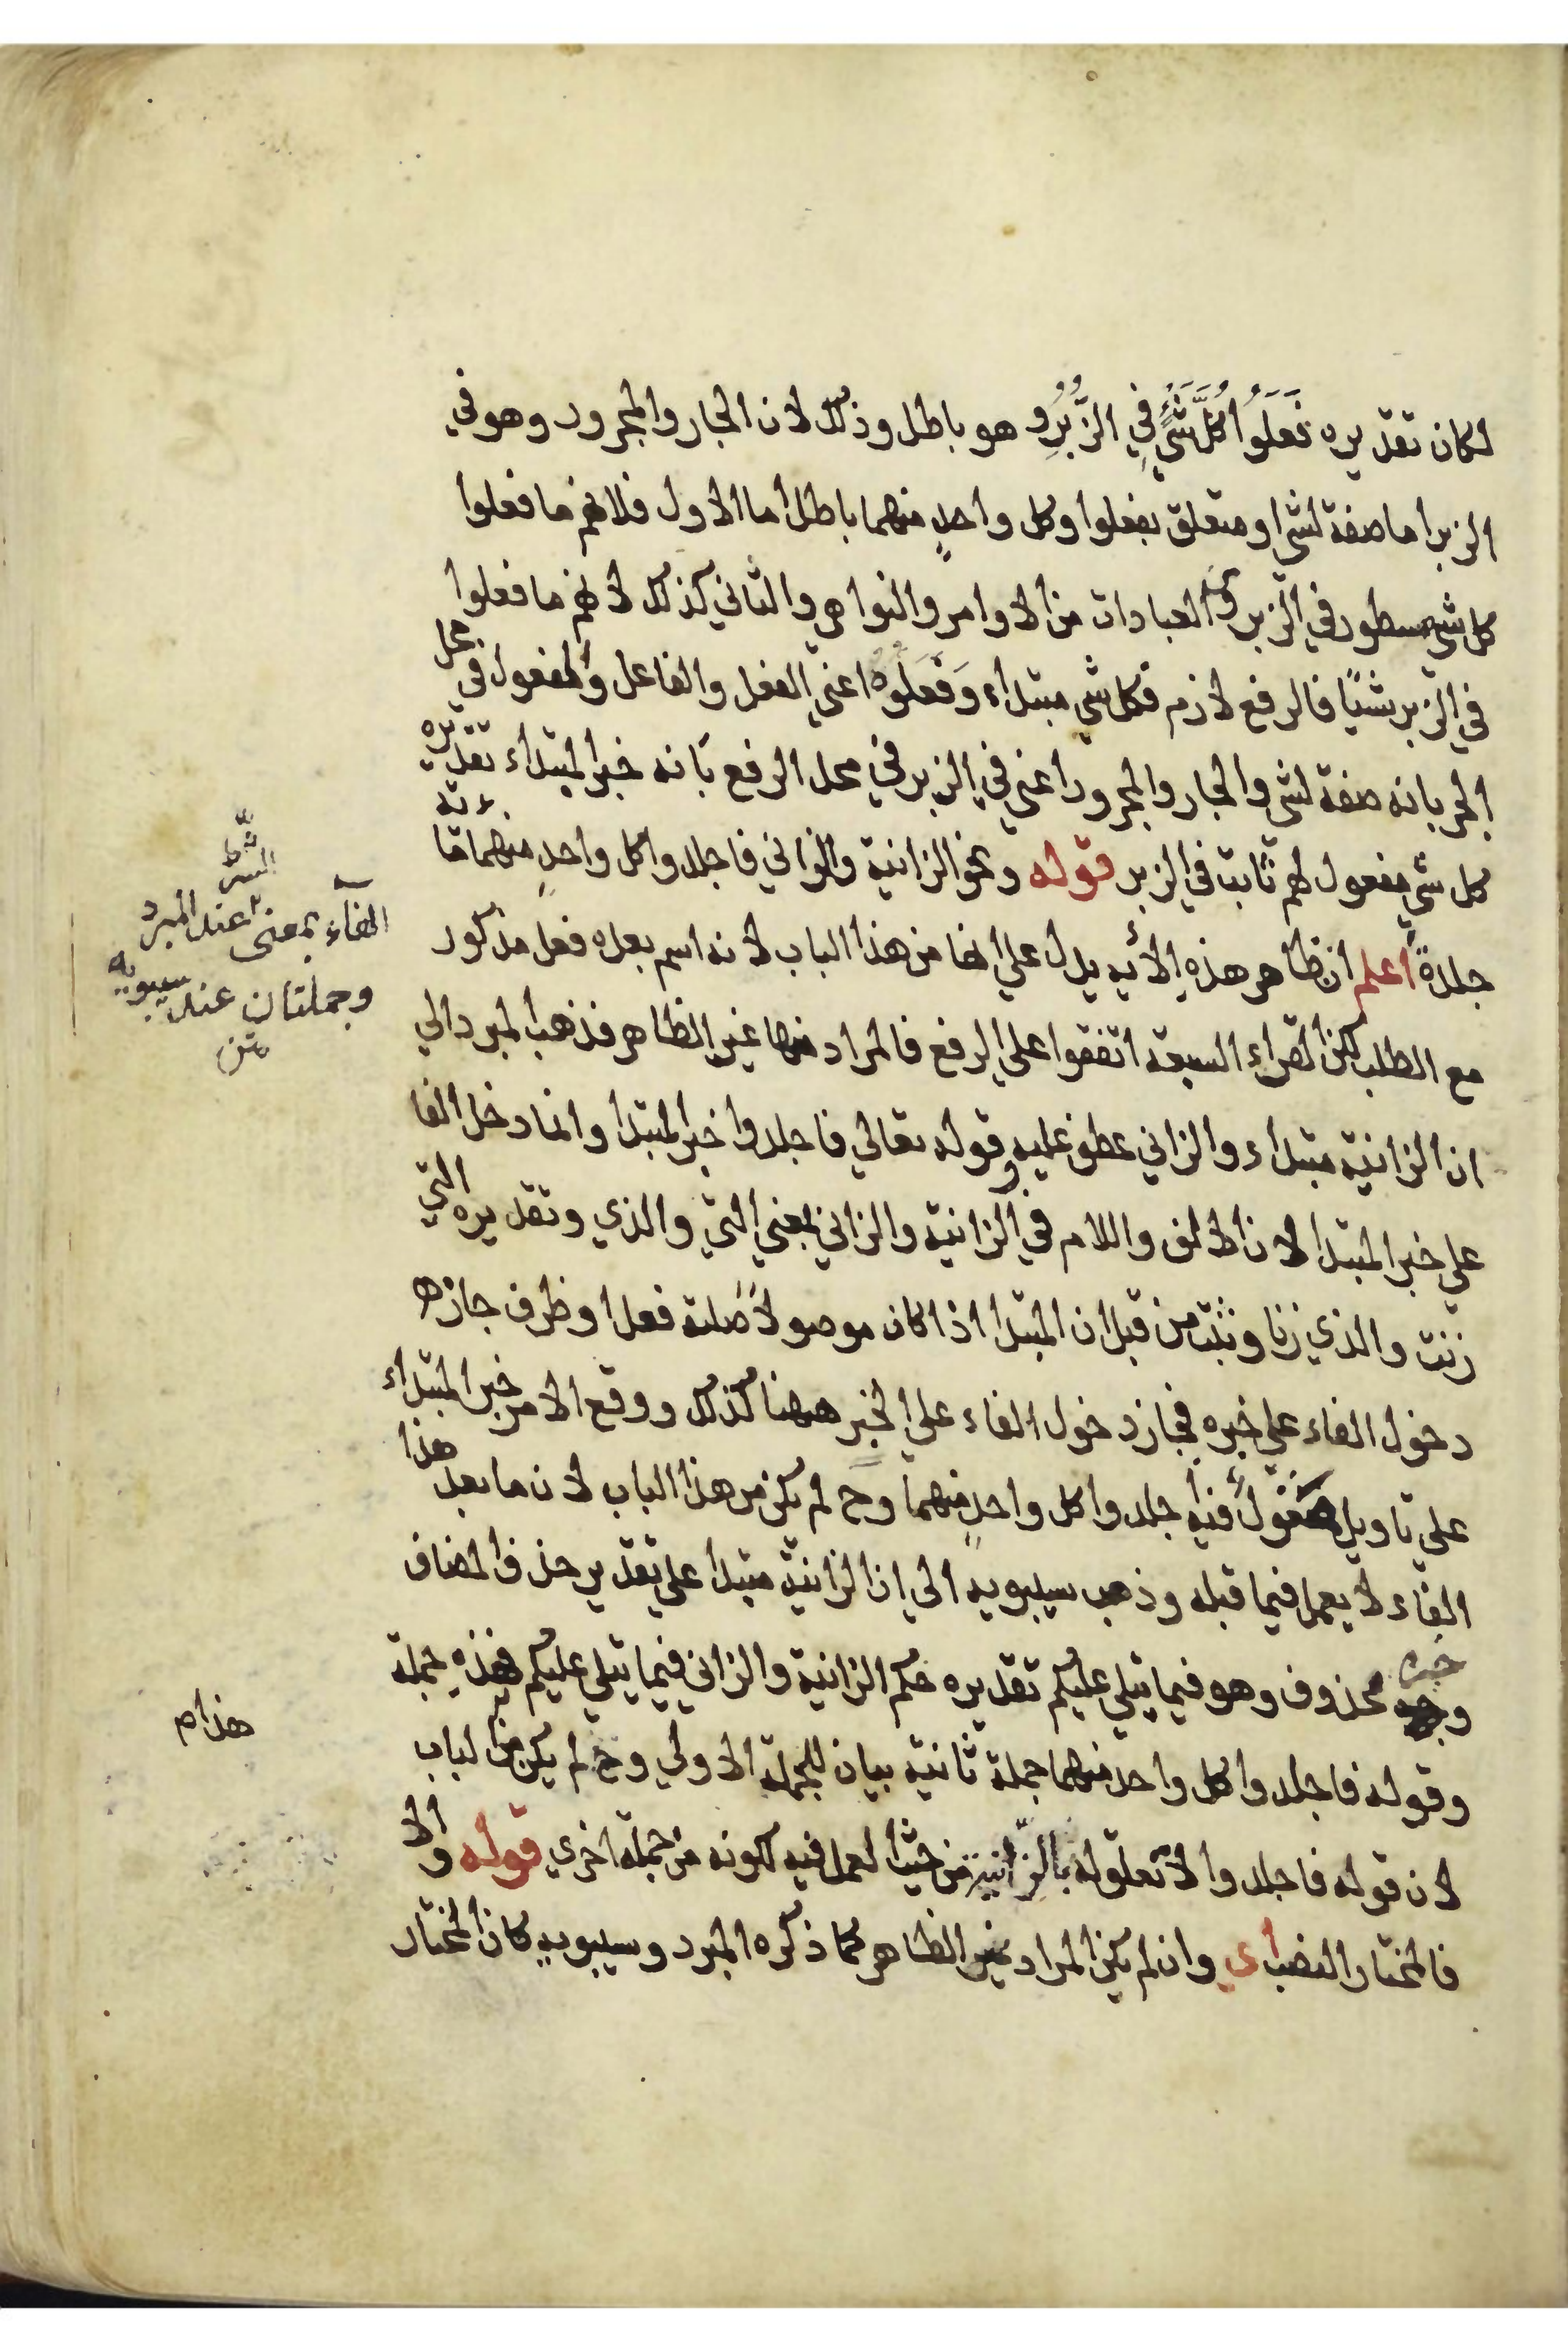 لكان تقديره فَعَلُوا كُلَّ شَيْءٍ فِي الزُّبُرِ و هو باطل وذلك لان الجار والمجرور وهو في
الزبر اما صفة لشئ او متعلق بفعلوا وكل واحدٍ منهما باطل اما الاول فلانهم ما فعلوا
كل شئ مسطور في الزبر العبادات من الاوامر والنواهي والثاني كذلك لانهم ما فعلوا
في الزبر شئًا فالرفع لازم فكل شي مبتداء وَفَعَلُوهُ اعني الفعل والفاعل والمفعول في محل
الجر بانه صفة لشئ والجار والمجرور اعني في الزبر في محل الرفع بانه خبر المبتداء تقديره
كل شي مفعول لهم ثابت في الزبر قوله ونحو الزانية والزاني فاجلدوا كل واحدٍ منهما مائة
جلدةً اعلم ان ظاهر هذه الأيه يدل علي انها من هذا الباب لانه اسم بعده فعل مذكور
مع الطلب لكن القراء السبعة اتفقوا علي الرفع فالمراد منها غير الظاهر فذهب المبرد الي
ان الزانية مبتداء والزاني عطف عليه وقوله تعالي فاجلدوا خبر المبتدا وانما دخل الفا
علي خبر المبتدا لان الالف واللام في الزانية والزاني بمعني التي والذي وتقديره التي
زنت والذي زنا وثبت من قبل ان المبتدا اذا كان موصولاً صلته فعل او ظرف جاز
دخول الفاء علي خبره فجاز دخول الفاء علي الخبر ههنا كذلك ووقع الامر خبر المبتداء
علي تاويل مَقُولٌ فيه اجلدوا كل واحدٍ منهما وح لم يكن من هذا الباب لان ما بعد هذا
الفاء لا يعمل فيما قبله وذهب سيبويه الي ان الزانية مبتدا علي تقدير حذف المضاف
وخبره محذوف وهو فيما يتلي عليكم تقديره حكم الزانية والزاني فيما يتلي عليكم فهذه جملة
وقوله فاجلدوا كل واحد منهما جملة ثانية بيان للجملة الاولي وح لم يكن من الباب
لان قوله فاجلدوا لا تعلق له بالزانية من حيث العمل فيه لكونه من جملة اخري قوله والا
فالمختار النصب اي وان لم يكن المراد غير الظاهر كما ذكره المبرد وسيبويه كان المختار
الفاء بمعنى الشرط عند المبرد
وجملتان عند سيبويه
متن
هذا م